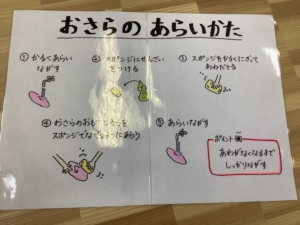 おさらの あらいかた
① かるくあらい
ながす
② スポンジにせんざい
をつける
③ スポンジをかるくにぎって
あわだてる
④ おさらのおもてとうらを
スポンジでなでるようにあらう
⑤ あらいながす
ポイント
あわがなくなるまで
しっかりながす